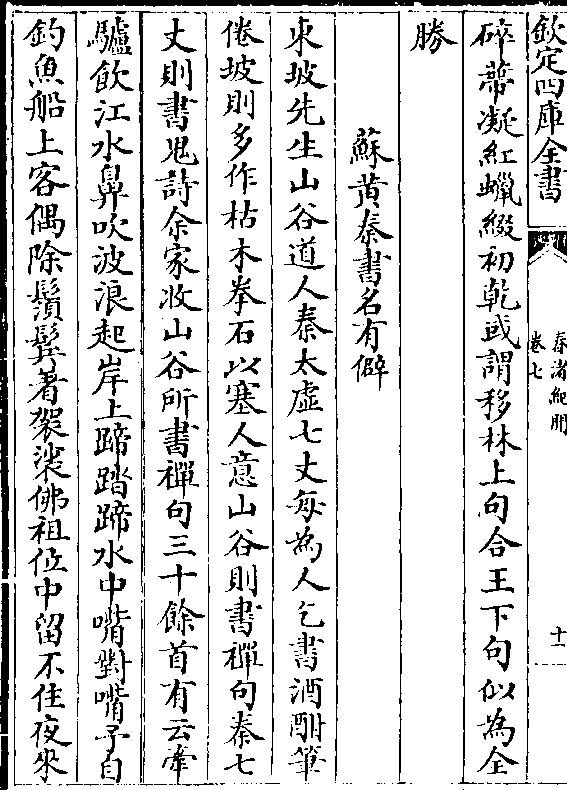 欽定四庫全書
春渚紀聞
卷七
十一
碎蔕凝紅蠟綴初乾或謂移林上句合王下句似為全
勝
蘇黄秦書名有僻
東坡先生山谷道人秦太虛七丈每為人乞書酒酣筆
倦坡則多作枯木拳石以塞人意山谷則書禪句秦七
丈則書鬼詩余家收山谷所書禪句三十餘首有云牽
驢飲江水鼻吹波浪起岸上蹄踏蹄水中嘴對嘴予自
釣魚船上客偶除鬚髮著袈裟佛祖位中留不住夜來